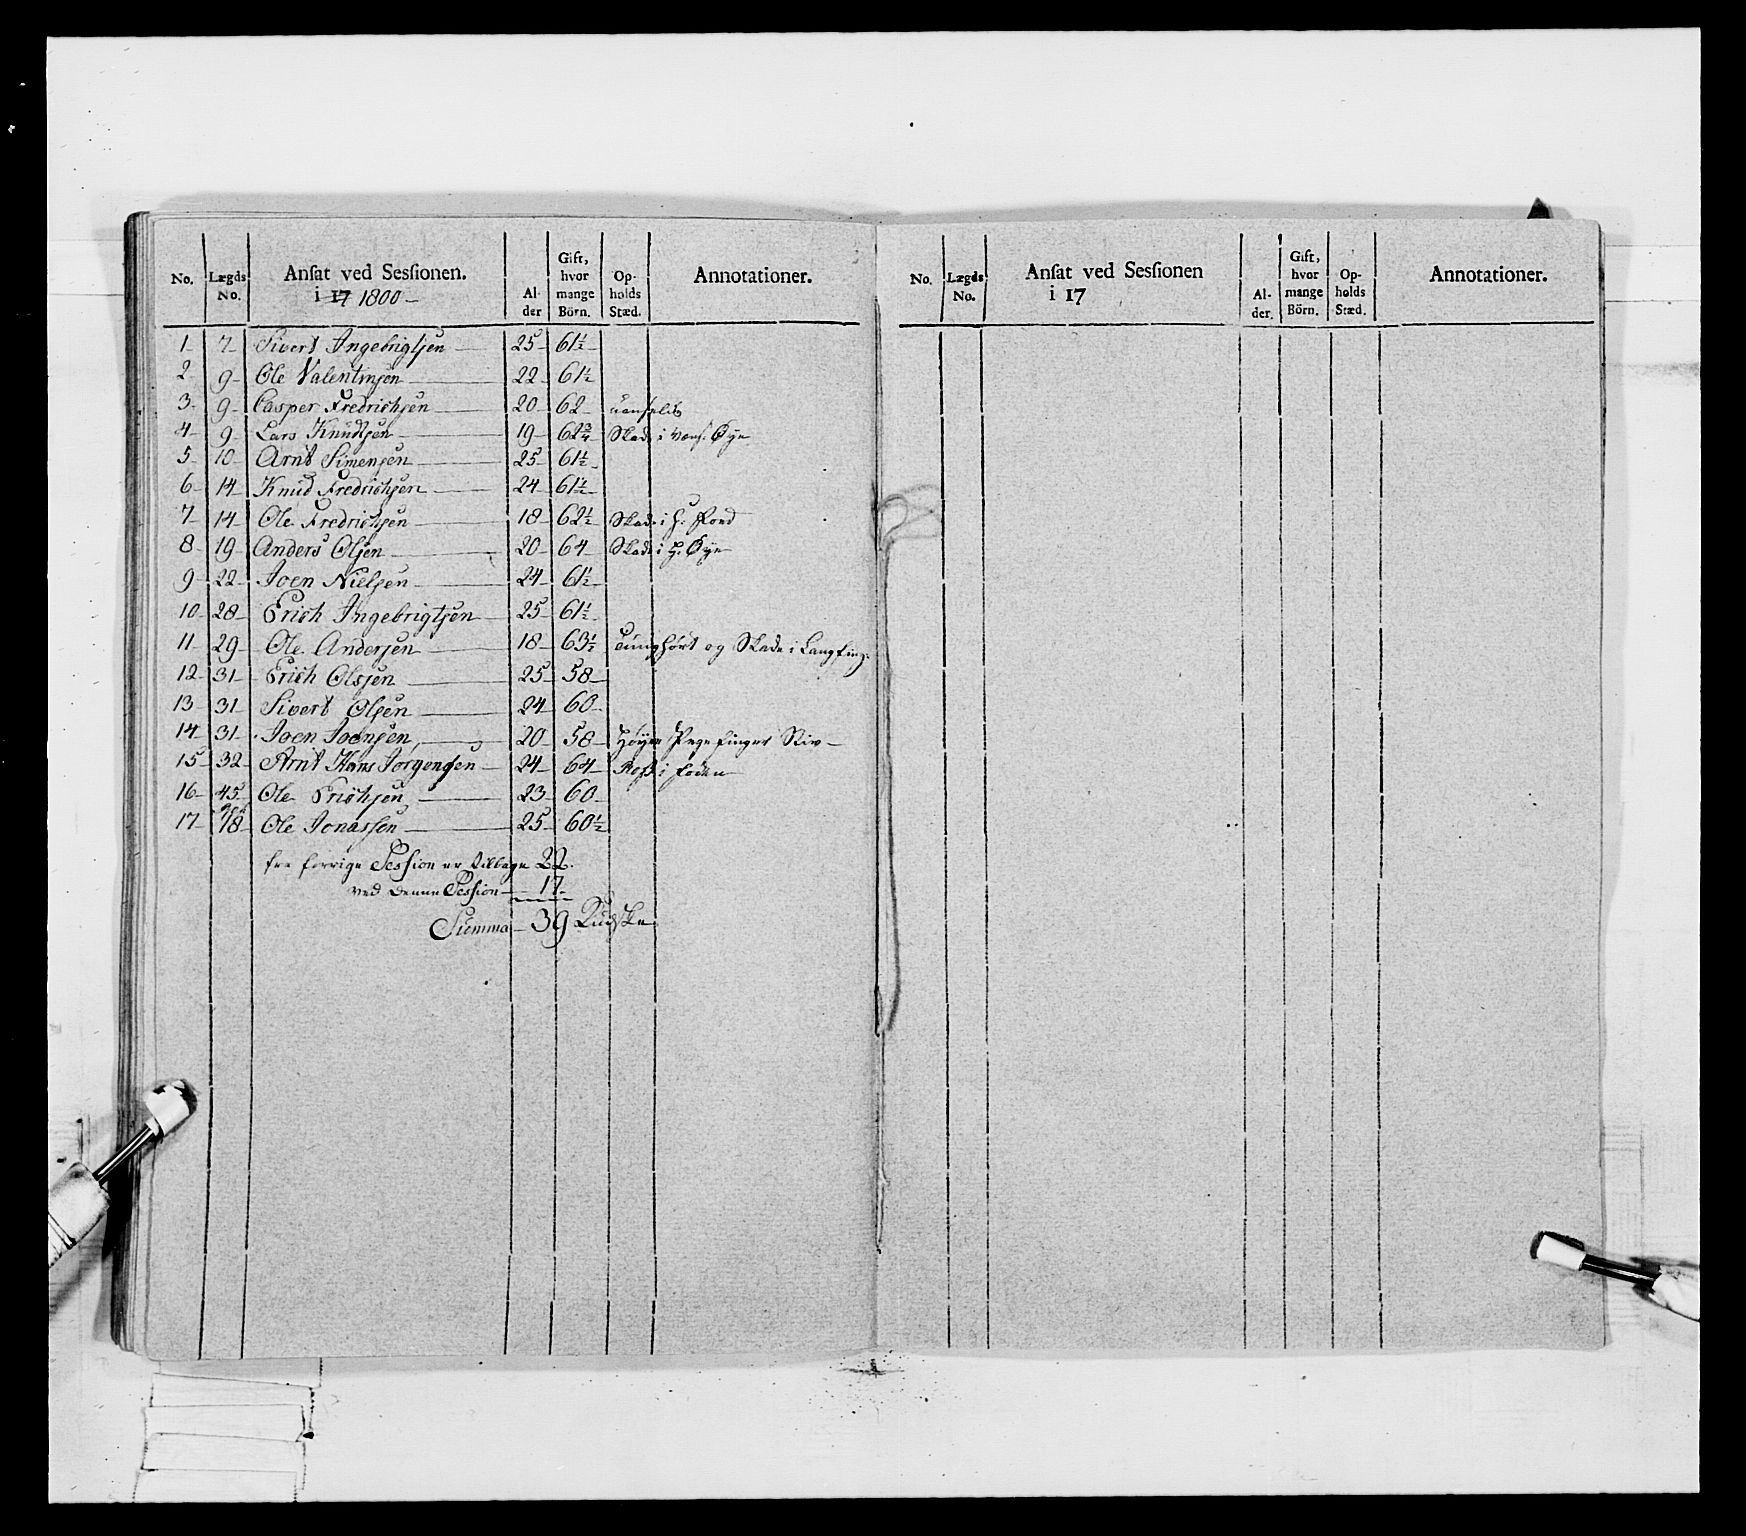 No. Lægds No. Ansat ved Sessionen. i 17 1800 - Al- der Gift, hvor mange Börn. Op- holds Stæd. Annotationer.
1 7 Sivert Ingebrigtsen 25 61½
2 9 Ole Valentinsen 22 61½
3 9 Casper Fredrichsen 20 62
4 9 Lars Knudtsen 19 62¾ Skade i Øye
5 10 Arnt Simensen 25 61½
6 14 Knud Fredrichsen 24 61½
7 14 Ole Fredrichsen 18 62½ Skade i h:
8 19 Anders Olsen 20 64 Skade i h: Øye
9 22 Joen Nielsen 24 61½
10 28 Erich Ingebrigtsen 25 61½
11 29 Ole Andersen 18 63½ Tunghört og Skade i Langfing:
12 31 Erich Olsen 25 58
13 31 Sivert Olsen 24 60
14 31 Joen Joensen 20 58 Høyre Pegefinger Stiv
15 32 Arnt Hans Jorgensen 24 64 i foden
16 45 Ole Erichsen 23 60
17 78 Ole Jonassen 25 60½
fra forrige Session er tilbage 22.
ved denne Session 17
Summa 39
No. Lægds No. Ansat ved Sessionen i 17 Al- der. Gift, hvor mange Börn. Op- holds Stæd. Annotationer.